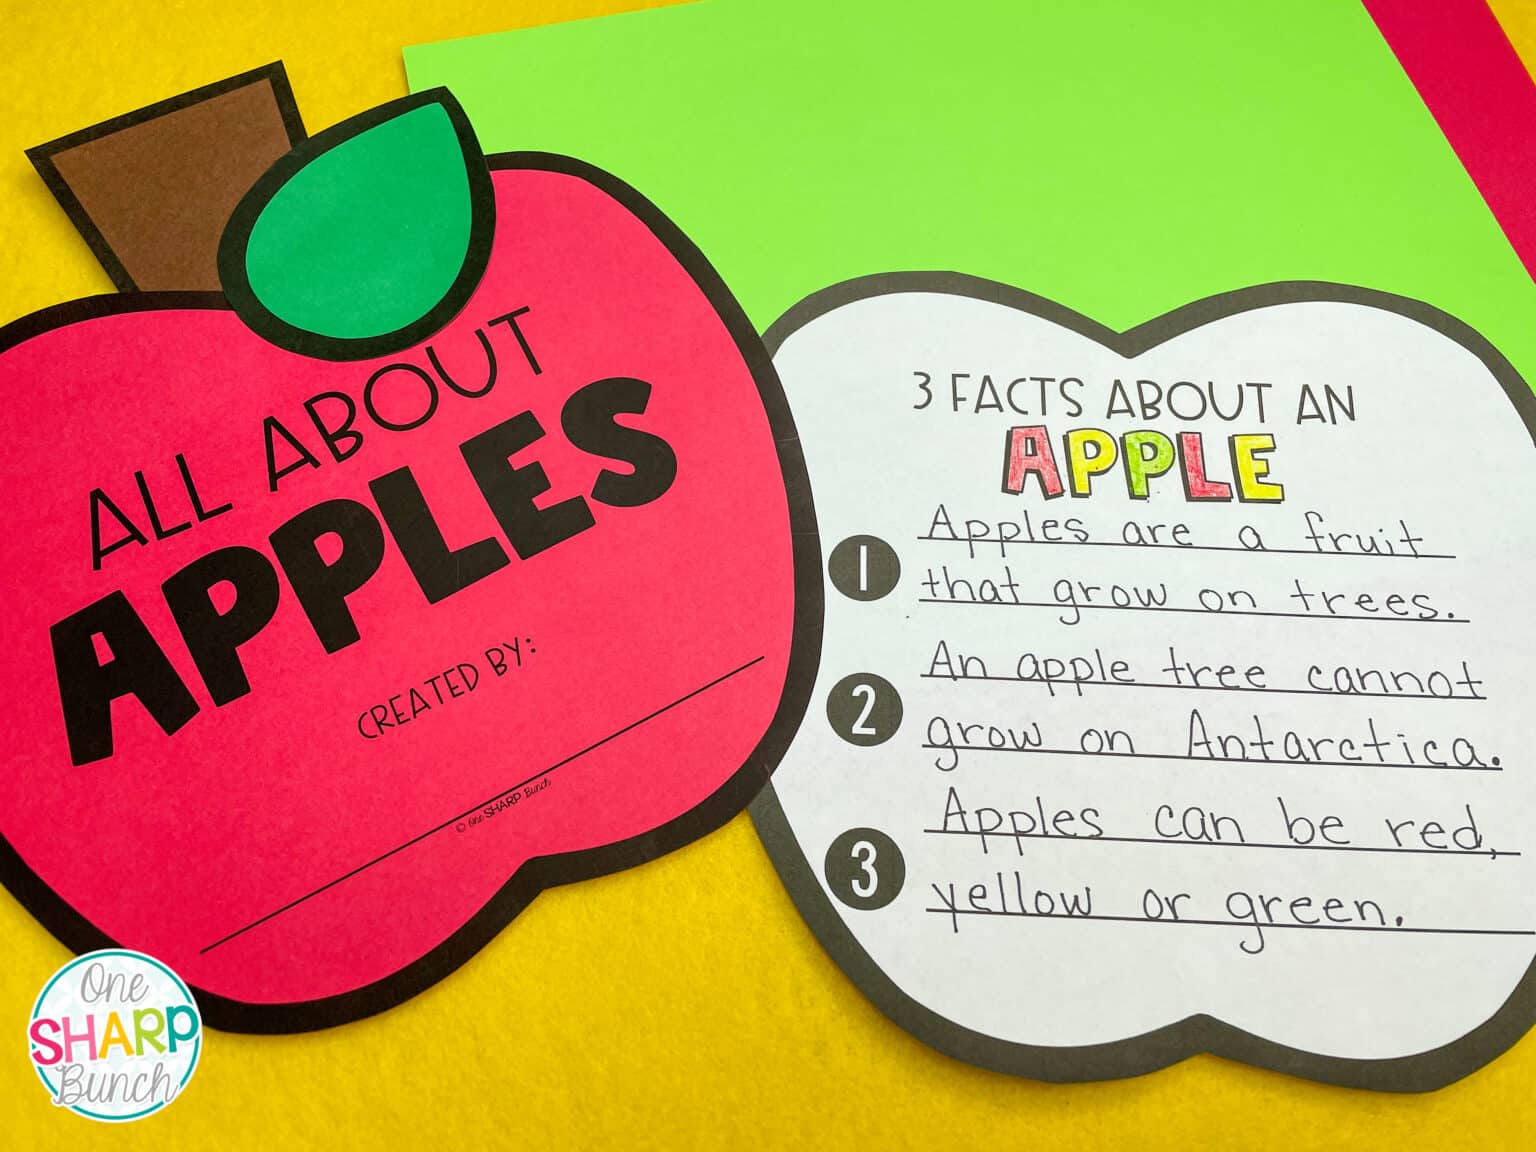 ALL ABOUT
APPLES
CREATED BY:
© One SHARP Bunch
3 FACTS ABOUT AN
APPLE
1 Apples are a fruit
that grow on trees.
2 An apple tree cannot
grow on Antarctica.
3 Apples can be red,
yellow or green.
One
SHARP
Bunch